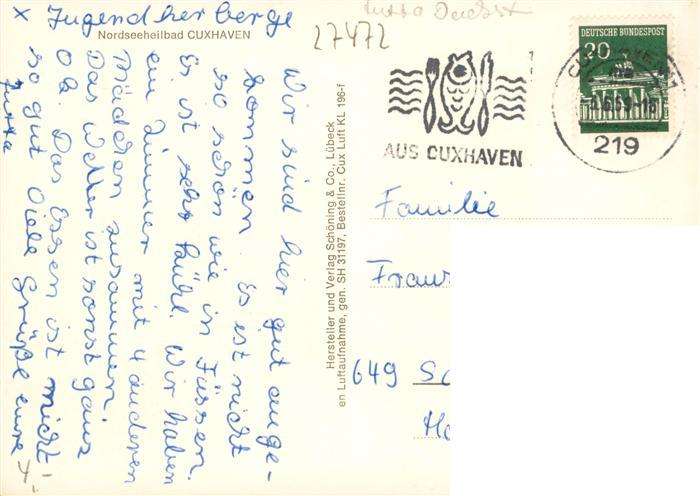 x Jugendherberge
Nordseeheilbad CUXHAVEN
Wir sind hier gut ange-
kommen. Es ist nicht
so schön wie in Füssen.
Es ist sehr kühl. Wir haben
ein Zimmer mit 4 anderen
Mädchen zusammen.
Das Wetter ist sonst ganz
o.k. Das Essen ist nicht
so gut Viele Grüße eure
Jutta
Hersteller und Verlag Schöning & Co., Lübeck
en Luftaufnahme, gen. SH 31197, Bestellnr. Cux Luft KL 196-f
27472
AUS CUXHAVEN
DEUTSCHE BUNDESPOST
219
Familie
649